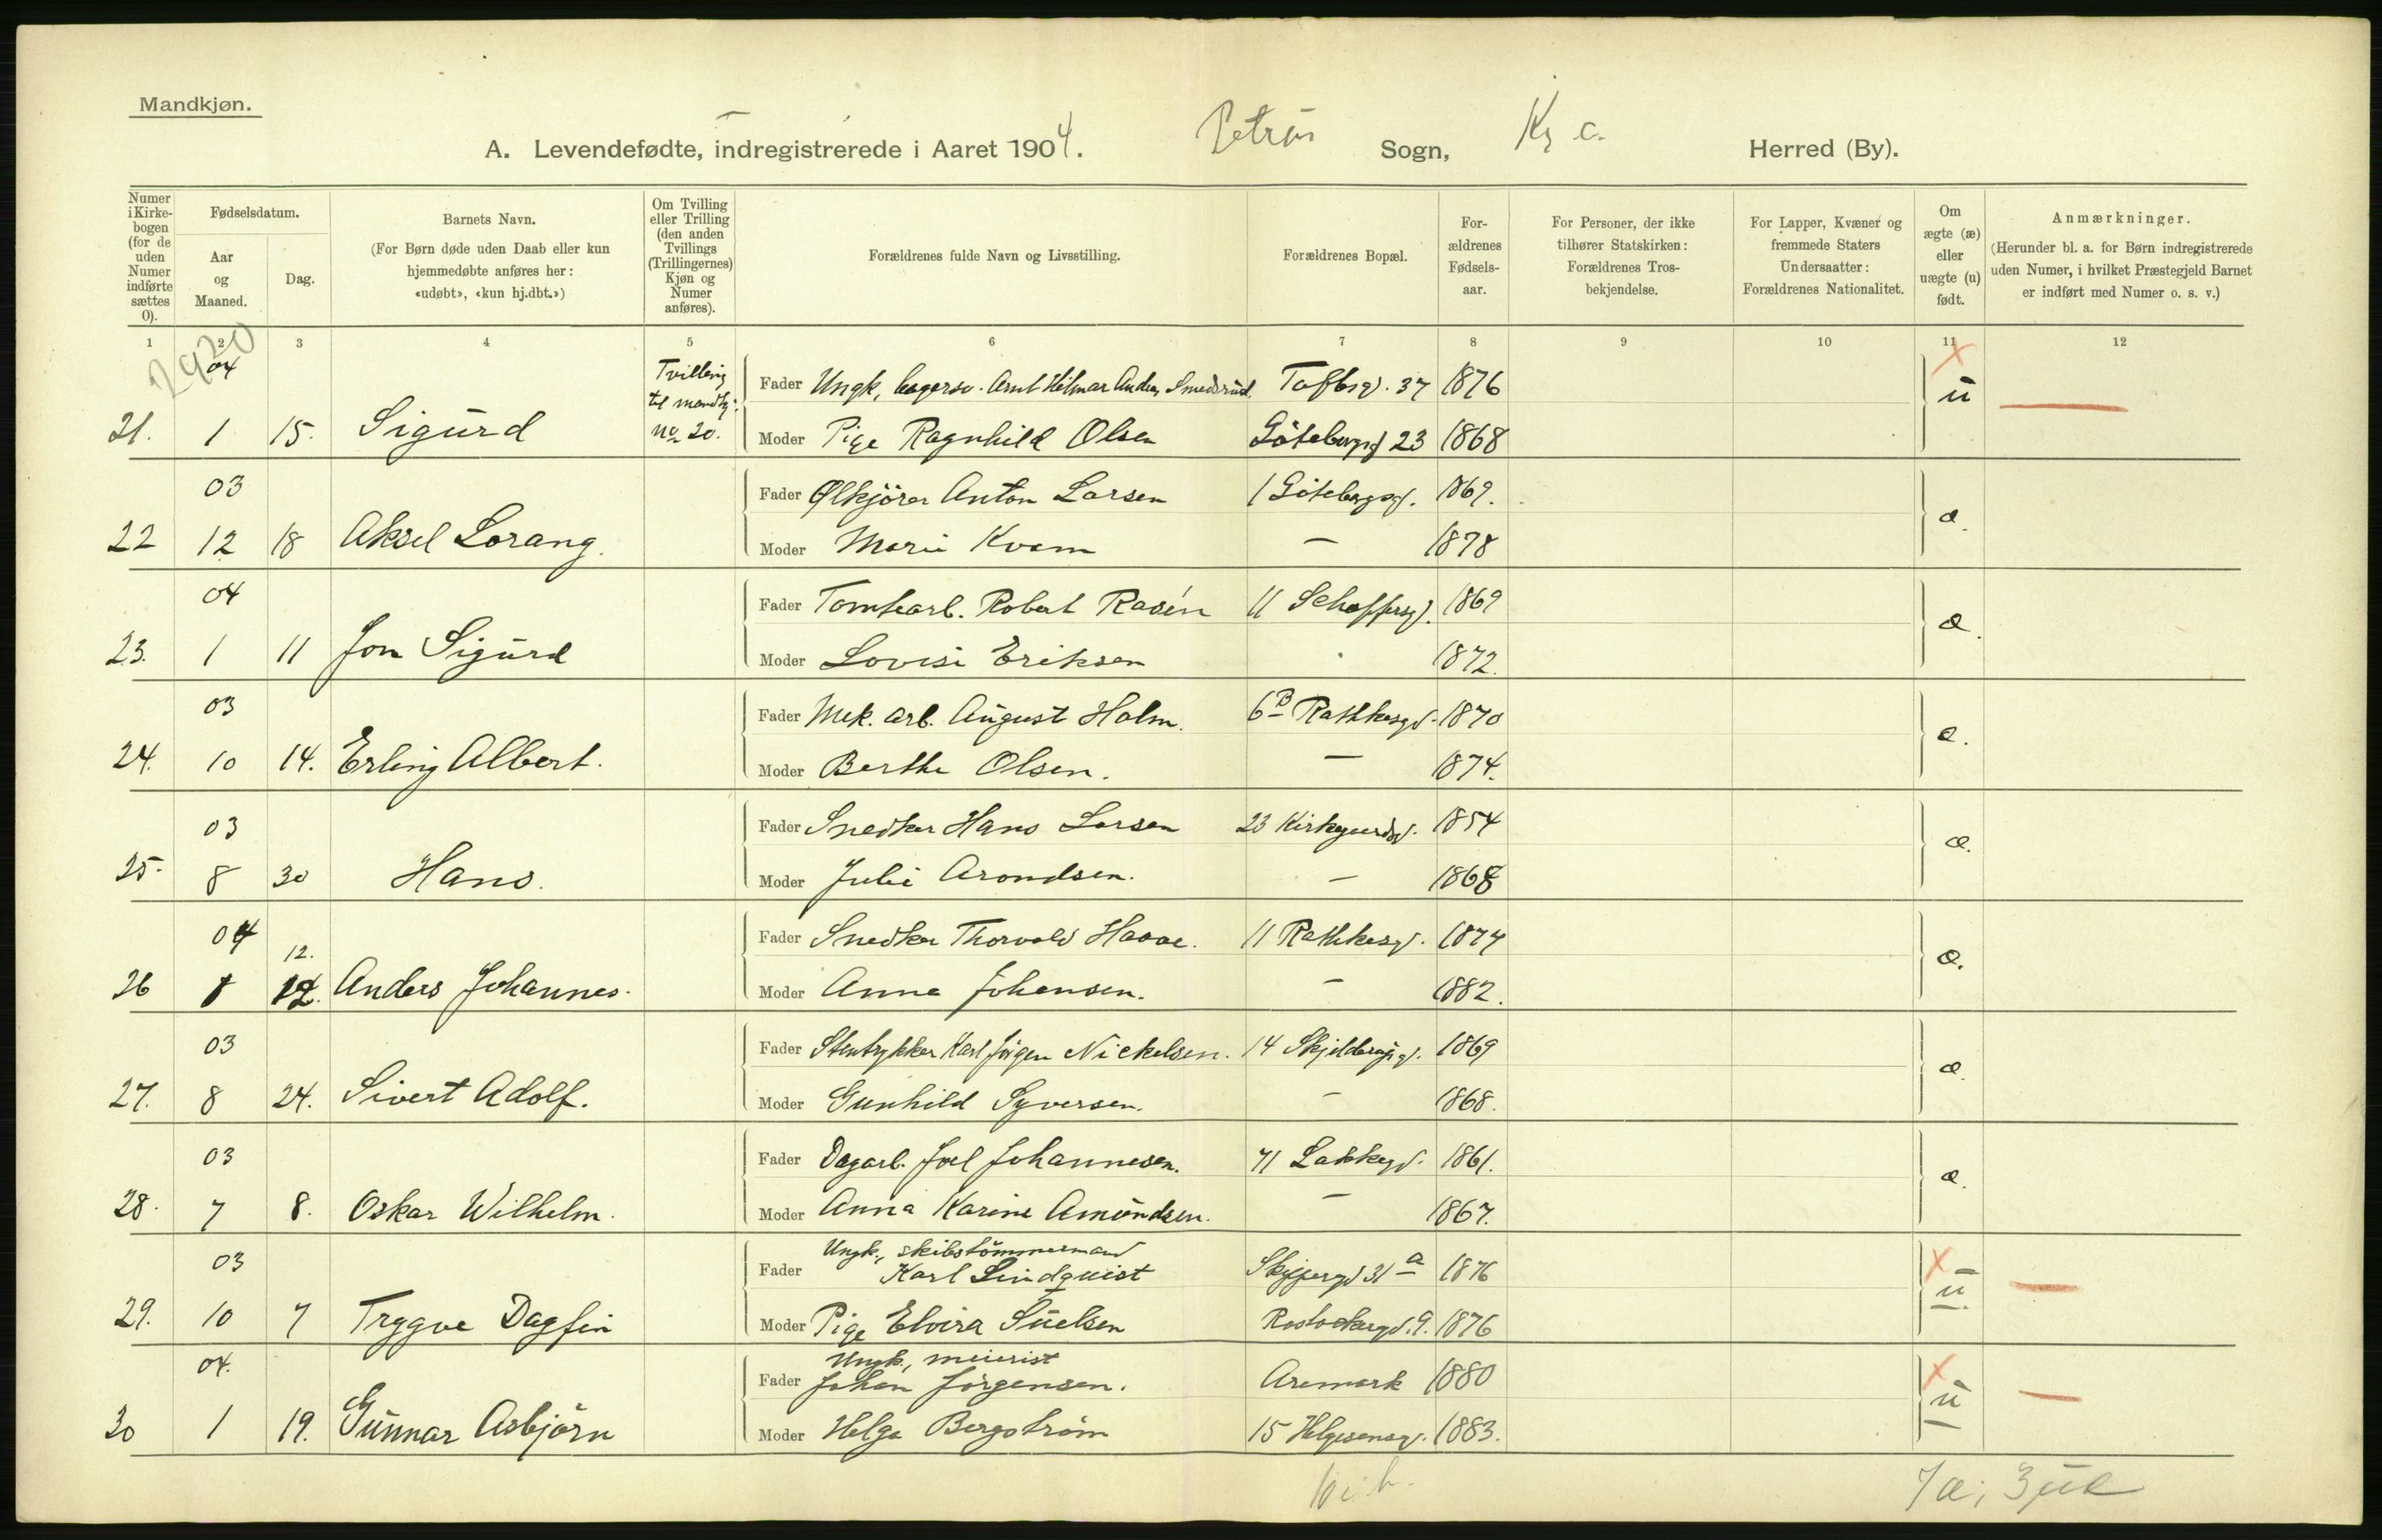 Mandkjøn.
A. Levendefødte, indregistrerede i Aaret 1904. Petrus Sogn, Kr a. Herred (By).
Numer i Kirkebogen (for de uden Numer indførte sættes 0).
Fødselsdatum.
Aar og Maaned.
Dag.
Barnets Navn.
(For Børn døde uden Daab eller kun hjemmedøbte anføres her: «udøbt», «kun hj.dbt.»)
Om Tvilling eller Trilling (den anden Tvillings (Trillingernes) Kjøn og Numer anføres).
Forældrenes fulde Navn og Livsstilling.
Forældrenes Bopæl.
Forældrenes Fødselsaar.
For Personer, der ikke tilhører Statskirken: Forældrenes Trosbekjendelse.
For Lapper, Kvæner og fremmede Staters Undersaatter: Forældrenes Nationalitet.
Om ægte (æ) eller uægte (u) født.
Anmærkninger.
(Herunder bl. a. for Børn indregistrerede uden Numer, i hvilket Præstegjeld Barnet er indført med Numer o. s. v.)
1 2 3 4 5 6 7 8 9 10 11 12
2920
04 Tvilling til mandkj: Fader Ungk, lagersv. Arnt Hilmar Anders Smedsrud. Toftesgd. 37 1876 u
21. 1 15. Sigurd No 20. Moder Pige Ragnhild Olsen Götebergsgd 23 1868
03 Fader Ølkjörer Anton Larsen 1 Götebergsgd. 1869. æ.
22 12 18 Aksel Lorang. Moder Marie Kvam — 1878
04 Fader Tomtearb. Robert Rosén 11 Schoffersgd. 1869 æ.
23. 1 11 Jon Sigurd Moder Lovise Eriksen 1872.
03 Fader Mek. arb. August Holm. 6B Rathkesgd. 1870 æ.
24. 10 14. Erling Albert. Moder Berthe Olsen. — 1874.
03 Fader Snedker Hans Larsen 23 Kirkegaardsgd. 1854 æ.
25. 8 30 Hans. Moder Julie Arondsen. — 1868
04 12. Fader Snedker Thorvald Haave. 11 Rathkesgd. 1874 æ.
26 1 12. Anders Johannes. Moder Anna Johansen. — 1882.
03 Fader Stentrykker Karl Jörgen Nickelsen. 14 Skjeldërupsgd. 1869 æ.
27. 8 24. Sivert Adolf. Moder Gunhild Syversen. — 1868.
03 Fader Dagarb. Joel Johannesen. 71 Lakkegd. 1861. æ.
28. 7 8. Oskar Wilhelm. Moder Anna Karine Amundsen. — 1867.
Ungk., skibstömmermand
03 Fader Karl Lindquist Skippergd 31 a 1876 u.
29. 10 7 Trygve Dagfin Moder Pige Elvira Suelsen Rostockergd. 9. 1876
Ungk., meierist
04. Fader Johan Jörgensen. Aremark 1880 u
30 1 19. Gunnar Asbjörn Moder Helga Bergström 15 Helgesensgd. 1883.
7 æ; 3 uæ